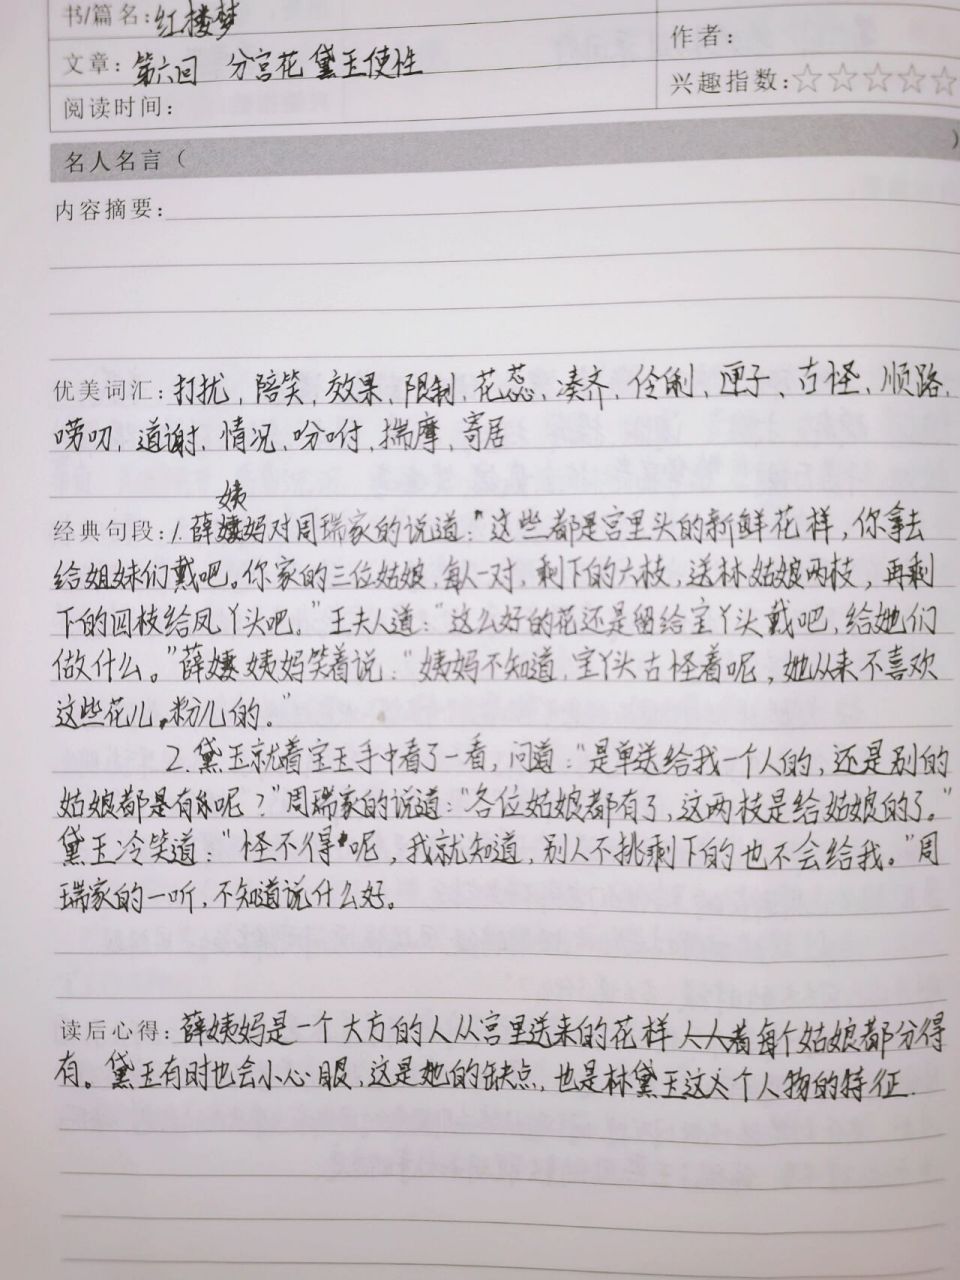 书/篇名:红楼梦
作者:
文章:第六回 分宫花黛玉使性
兴趣指数:☆☆☆☆☆
阅读时间:
名人名言( )
内容摘要:
优美词汇:打扰、陪笑、效果、限制、花蕊、凑齐、伶俐、匣子、古怪、顺路、
唠叨、道谢、情况、吩咐、揣摩、寄居
姨
经典句段:1.薛妈对周瑞家的说道:"这些都是宫里头的新鲜花样,你拿去
给姐妹们戴吧。你家的三位姑娘,每人一对,剩下的六枝,送林姑娘两枝,再剩
下的四枝给凤丫头吧。"王夫人道:"这么好的花还是留给宝丫头戴吧,给她们
做什么。"薛姨妈笑着说:"姨妈不知道,宝丫头古怪着呢,她从来不喜欢
这些花儿,粉儿的。"
2.黛玉就着宝玉手中看了一看,问道:"是单送给我一个人的,还是别的
姑娘都有呢?"周瑞家的说道:"各位姑娘都有了,这两枝是给姑娘的了。"
黛玉冷笑道:"怪不得呢,我就知道,别人不挑剩下的也不会给我。"周
瑞家的一听,不知道说什么好。
读后心得:薛姨妈是一个大方的人从宫里送来的花样每个姑娘都分得
有。黛玉有时也会小心眼,这是她的缺点,也是林黛玉这个人物的特征.